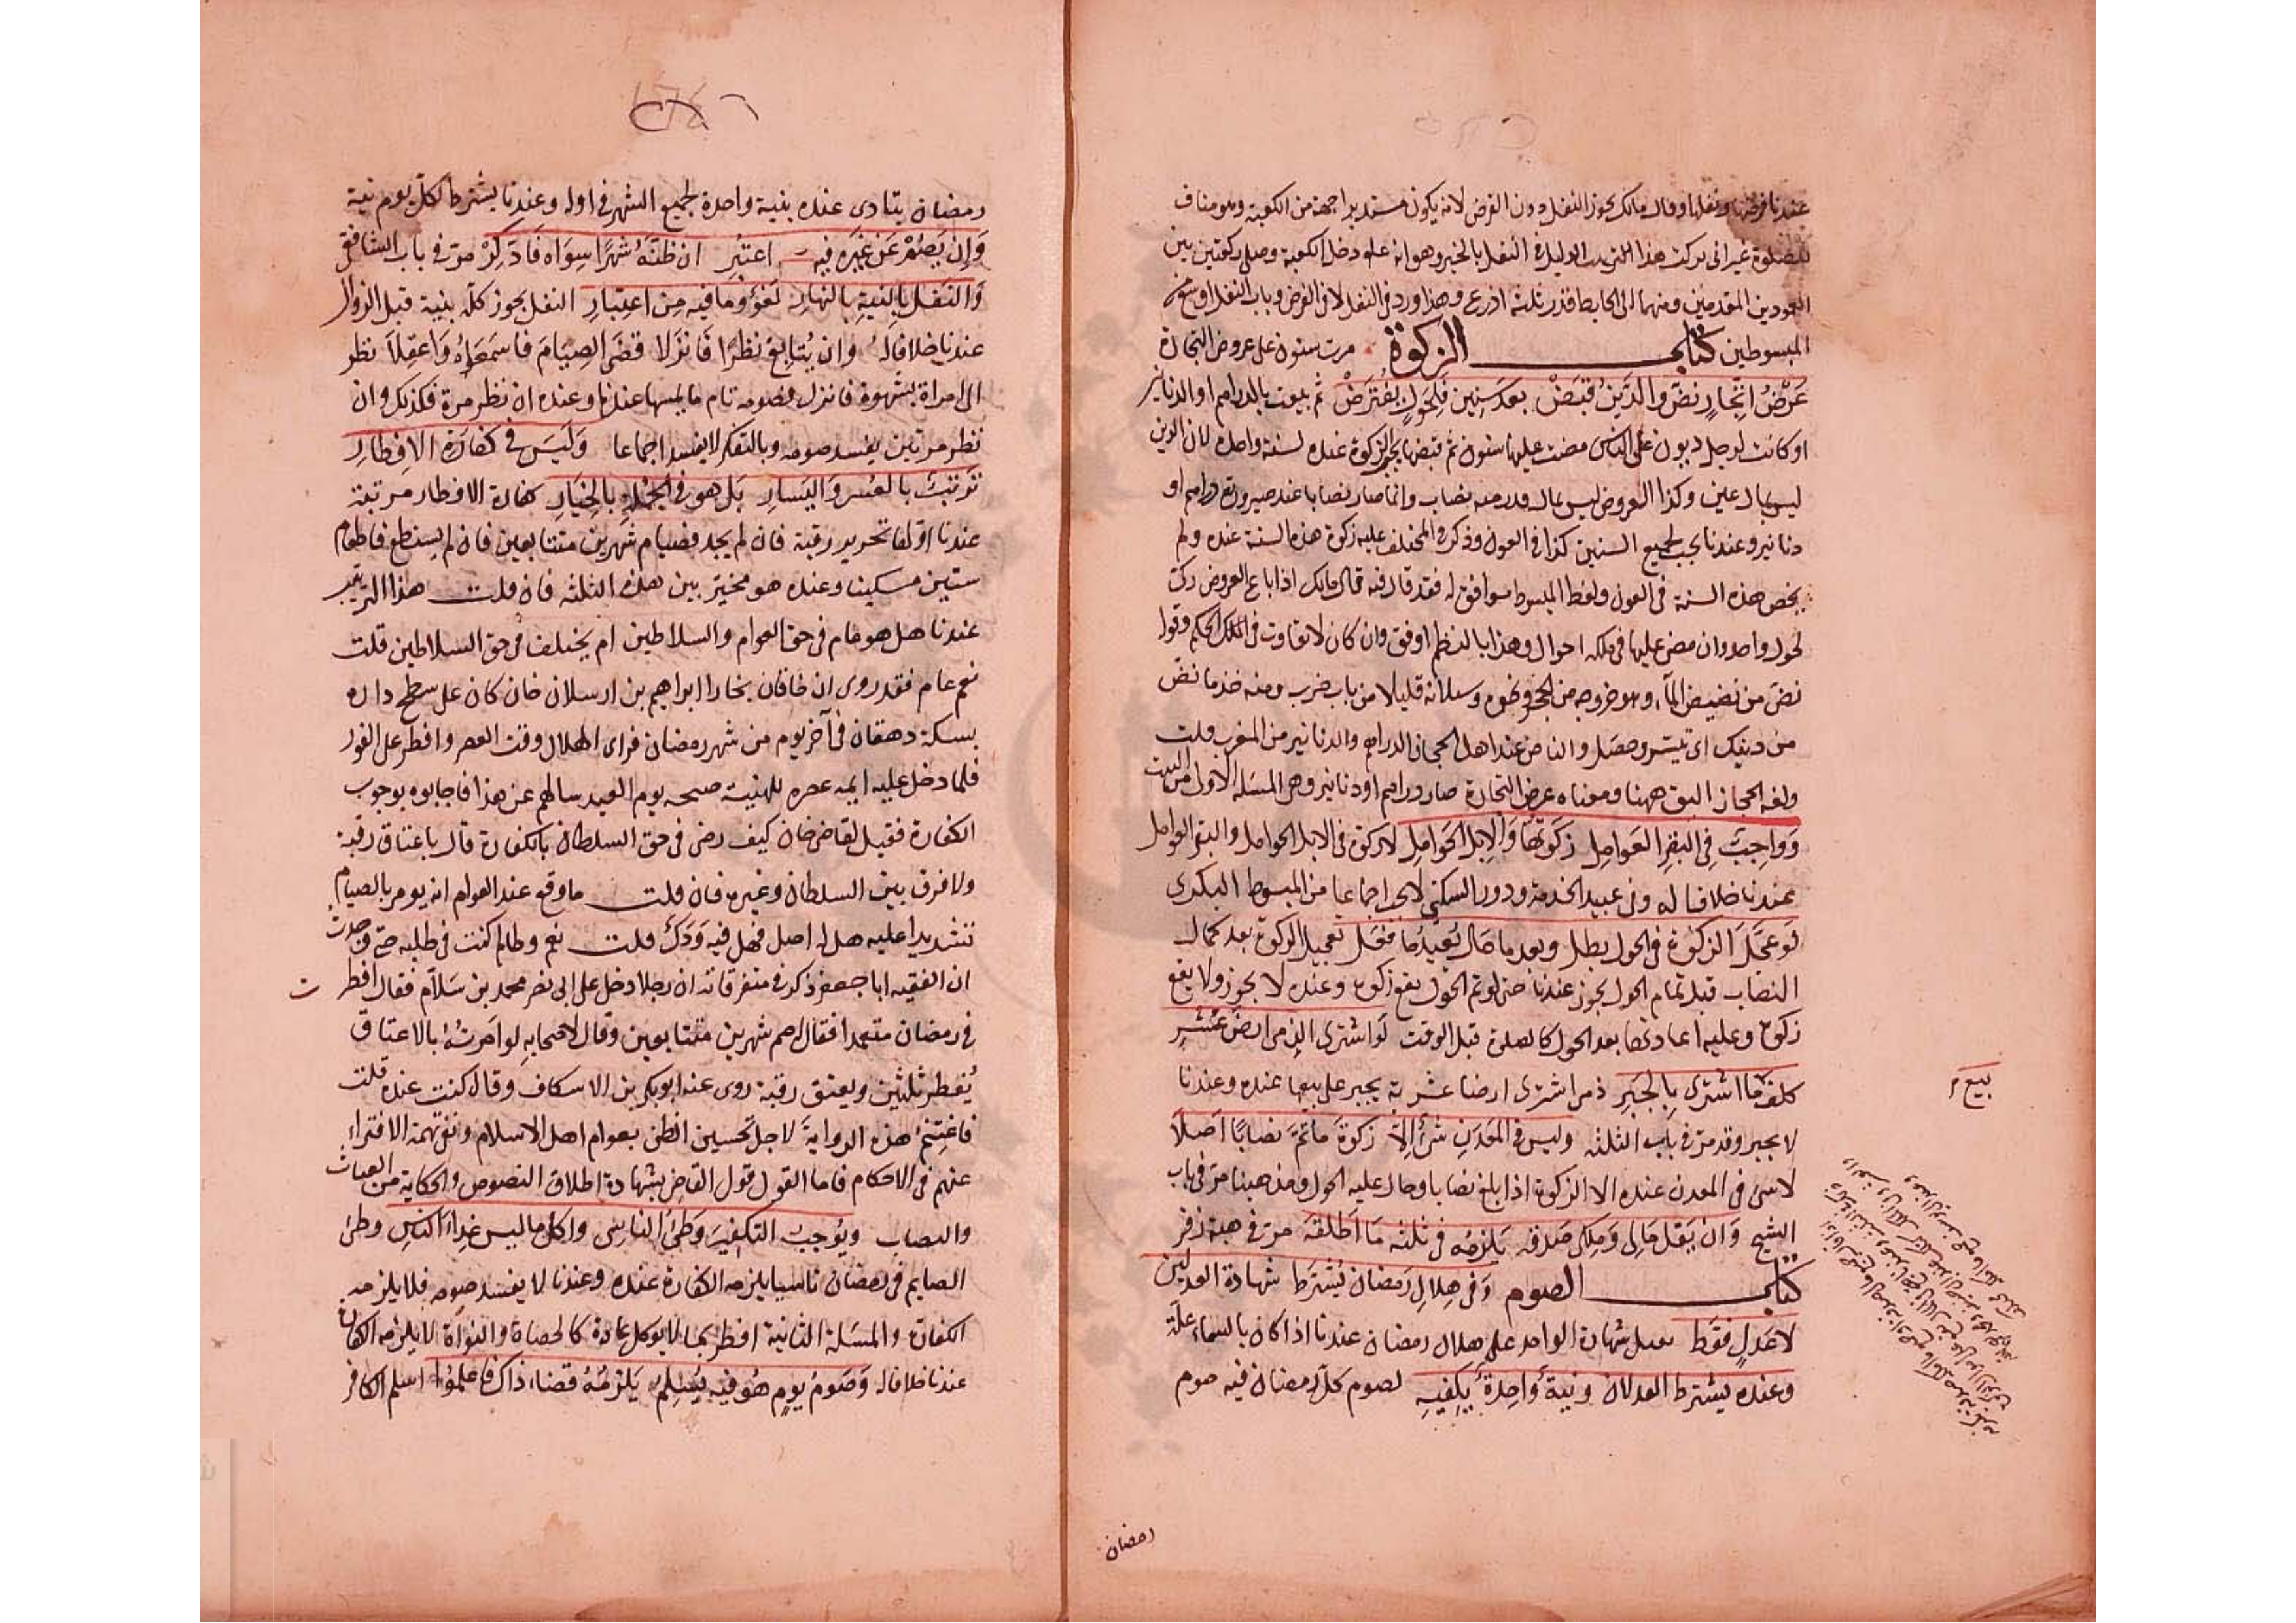 عندنا فرضها ونفلها وقال مالك يجوز النفل دون الفرض لانه يكون مستدبرا جهة من الكعبة وهو مناف
للصلوة غيرانى تركت هذا فى النفل بالخبر وهو انه عله دخل الكعبة وصلى ركعتين بين
العمودين المقدمين ومنهما الى الحايط قدر ثلثة اذرع وهذا ورد فى النفل لا فى الفرض وباب النفل اوسع
المبسوطين كتاب الزكوة مرت سنون على عروض التجارة
عَرْضُ اتِّجارٍ نضّ والدَّينُ قُبَضْ بعد سَنِين فلحَولٍ يُفتَرَضْ ثم بيعت بالدراهم او الدنانير
او كانت لرجل ديون على الناس مضت عليها سنون ثم قبضها يجب الزكوة عنده لسنة واحدة لان الدين
ليس بمال عين وكذا العروض ليس بمال نصاب وانما صار نصابا عند صيرورته دراهم او
دنانير وعندنا يجب لجميع السنين كذا فى العول وذكر فى المختلف عليه زكوة هذه السنة عنده ولم
يخص هذه السنة فى العول ولفظ المبسوط موافق له فقد قال فيه قال مالك اذا باع العروض زكى
لحول واحد وان مضى عليها فى ملكه احوال وهذا بالنظم اوفق وان كان لا تفاوت فى الحكم وقوله
نضّ من نضيض الماء وهو خروجه من الحجر ونحوه وسيلانه قليلا من باب ضرب ومنه خذ ما نضّ
من دينك اى تيسر وحصل والناض عند اهل الحجاز الدراهم والدنانير من المغرب قلت
ولغة الحجاز اليق ههنا ومعناه عرض التجارة صار دراهم او دنانير وهى المسئلة الاولى من البيت
وَوَاجِبٌ فِى البقرِ العَوامِل زكوتُها وَالإبل الحَوامِل لا زكوة فى الابل الحوامل والبقر العوامل
عندنا خلافا له وفى عبيد الخدمة ودور السكنى لا يجب اجماعا من المبسوط البكرى
لَو عجّلَ الزكوةَ فى الحول بطل وبعد ما حَال يُعيدُها فقل تعجيل الزكوة بعد كمال
النصاب قبل تمام الحول يجوز عندنا حتى لو تم الحول يقع زكوة وعنده لا يجوز ولا يقع
زكوة وعليه اعادتها بعد الحول كالصلوة قبل الوقت لَو اشترى الذمى ارضَ عُشْرٍ
كلف ما اشترى بالجَبرِ ذمى اشترى ارضا عشرية يجبر على بيعها عنده وعندنا
بيع
لا يجبر وقد مرّ فى باب الثلثة وليس فى المَعدَنِ شئ إلا زكوةَ ما تمّ نصابًا اصلا
لا شئ فى المعدن عنده الا الزكوة اذا بلغ نصابا وحال عليه الحول ومذهبنا مرّ فى باب
الشيخ وَان يَقل مَالِى وَمِلكى صَدقه يَلزمُه فى ثلثه مَا اَطلقَه مرّ فى هبة زفر
كتاب الصوم وَفى هِلالِ رَمضان يُشترَط شهادة العدلين
لا عَدلٍ فقَط يقبل شهادة الواحد على هلال رمضان عندنا اذا كان بالسماء علّة
وعنده يشترط العدلان ونيةٌ واحِدةٌ يكفيهِ لصوم كلّ رمضان فيه صوم
رمضان
رمضان يتادى عنده بنية واحدة لجميع الشهر فى اوله وعندنا يشترط لكل يوم نية
وَإن يَصُمْ عَن غيرَه فيه اعتُبر ان ظَنّه شهرًا سِوَاه فَادّكِرْ مرّ فى باب الشافعى
وَالنفل بالنيةِ بالنهارِ لغوٌ وما فيه مِن اعتبارِ النفل يجوز كله بنية قبل الزوال
عندنا خلافا له وان يُتابع نظرًا فَانزَلا قضَى الصِيَامَ فاسمَعَاهُ وَاعقِلَا نظر
الى امراة بشهوة فانزل فصومه تام ما لم يمسها عندنا وعنده ان نظر مرة فكذلك وان
نظر مرتين يفسد صومه وبالتفكر لا يفسد اجماعا وَلَيسَ فى كفارة الافطارِ
ترتبٌ بالعُسر وَاليَسارِ بَل هو فى الجملةِ بالخيَارِ كفارة الافطار مرتبة
عندنا اوّلها تحرير رقبة فان لم يجد فصيام شهرين متتابعين فان لم يستطع فاطعام
ستين مسكينا وعنده هو مخيّر بين هذه الثلثة فان قلت هذا الترتيب
عندنا هل هو عام فى حق العوام والسلاطين ام يختلف فى حق السلاطين قلت
نعم عام فقد روى ان خاقان بخارا ابراهيم بن ارسلان خان كان على سطح داره
بسكة دهقان فى آخر يوم من شهر رمضان فراى الهلال وقت العصر وافطر على الفور
فلما دخل عليه ايمة عصره للهنية صبحة يوم العيد سالهم عن هذا فاجابوه بوجوب
الكفارة فقيل لقاضى خان كيف رضى فى حق السلطان بالكفارة قال باعتاق رقبة
ولا فرق بين السلطان وغيره فان قلت ما وقع عند العوام انه يومر بالصيام
تشديدا عليه هل له اصل فهل فيه قلت نعم وطالما كنت فى طلبه حتى وجدت
ان الفقيه ابا جعفر ذكر فى متفرقاته ان رجلا دخل على ابى نصر محمد بن سَلام فقال افطرت
فى رمضان متعمدا فقال صم شهرين متتابعين وقال لاصحابه لو اَمَرتُهُ بالاعتاق
يُفطر ثلثين ويعتق رقبة روى عنه ابو بكر بن الاسكاف وقال كنت عنده قلت
فاغتنم هذه الرواية لاجل تحسين الظن بعوام اهل الاسلام ونفى تهمة الافتراء
عنهم فى الاحكام فاما القول قول القاضى بشهادة اطلاق النصوص والحكاية من
ويُوجبُ التكفيرَ وَطئُ الناسِى واكلُ ما ليس غِذاءَ الناسِ وطئ
الصايم فى رمضان ناسيا يلزمه الكفارة عنده وعندنا لا يفسد صومه فلا يلزمه
الكفارة والمسئلة الثانية افطر بما لا يوكل عادة كالحصاة والنواة لا يلزمه الكفارة
عندنا خلافا له وَصَومُ يومٍ هُو فيه يُسْلِم يَلزمُهُ قضاء ذاك فاعلموا اسلم الكافر